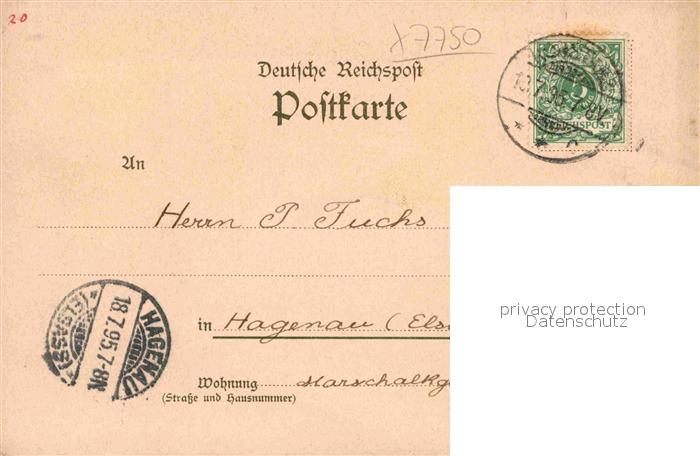 20
X7750
Deutsche Reichspost
Postkarte
REICHSPOST
An
Herrn P. Fuchs
privacy protection
Datenschutz
in Hagenau (Els
HAGENAU
18.7.95.7-8N.
(ELSASS)
Wohnung Marschalkg
(Straße und Hausnummer)